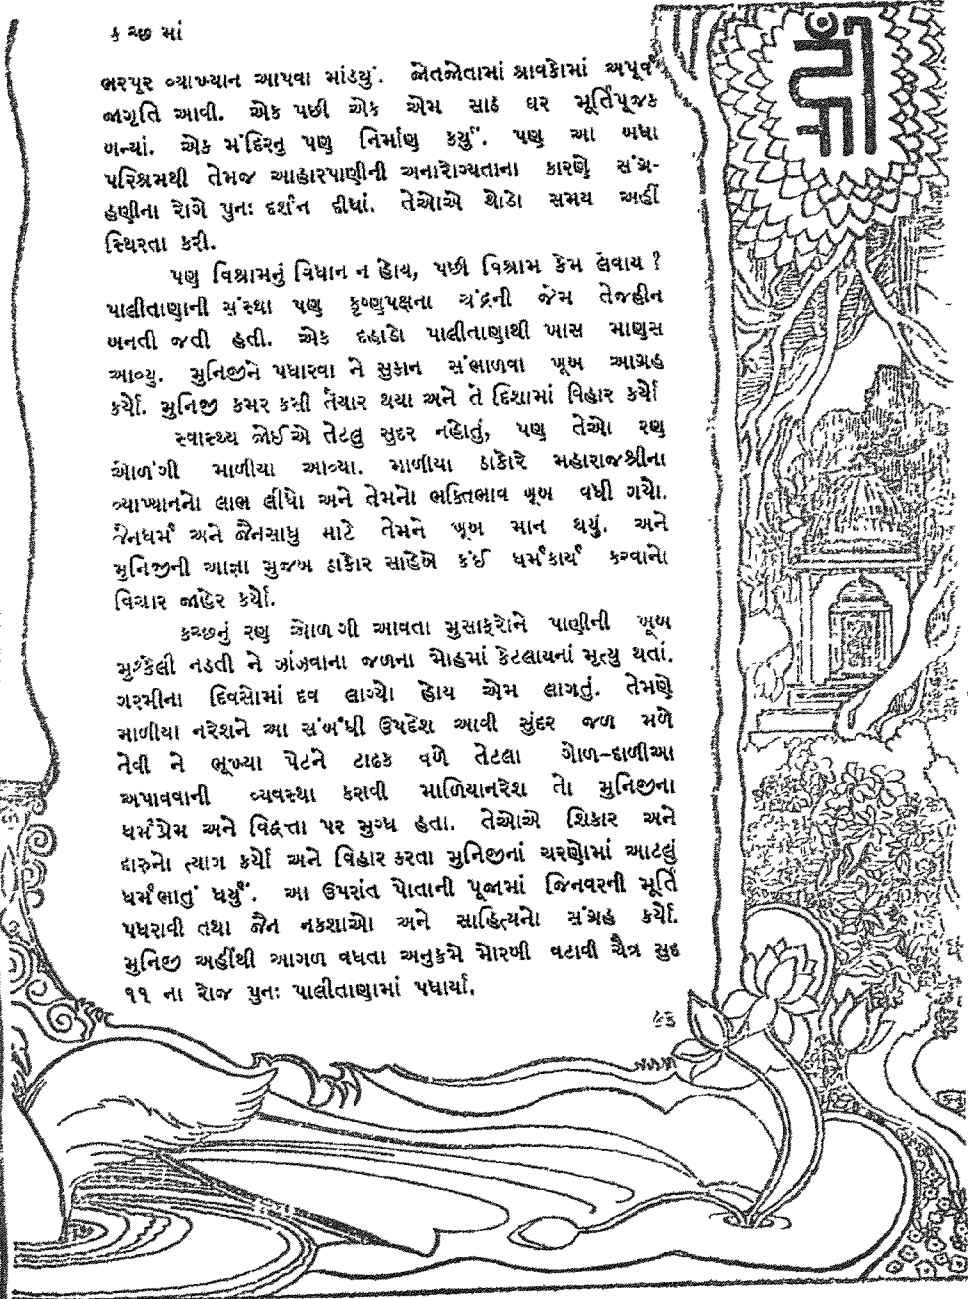 કચ્છમાં
ભરપૂર વ્યાખ્યાન આપવા માંડયું. જોતજોતામાં શ્રાવકોમાં અપૂર્વ
જાગૃતિ આવી. એક પછી એક એમ સાઠ ઘર મૂર્તિપૂજક
બન્યાં. એક મંદિરનુ પણ નિર્માણ કર્યું. પણ આ બધા
પરિશ્રમથી તેમજ આહારપાણીની અનારોગ્યતાના કારણે સંગ્ર-
હણીના રોગે પુનઃ દર્શન દીધાં. તેઓએ થોડો સમય અહીં
સ્થિરતા કરી.
પણ વિશ્રામનું વિધાન ન હોય, પછી વિશ્રામ કેમ લેવાય ?
પાલીતાણાની સંસ્થા પણ કૃષ્ણપક્ષના ચંદ્રની જેમ તેજહીન
બનતી જતી હતી. એક દહાડો પાલીતાણાથી ખાસ માણસ
આવ્યુ. મુનિજીને પધારવા ને સુકાન સંભાળવા ખૂબ આગ્રહ
કર્યો. મુનિજી કમર કસી તૈયાર થયા અને તે દિશામાં વિહાર કર્યો
સ્વાસ્થ્ય જોઈએ તેટલુ સુદર નહોતું, પણ તેઓ રણ
ઓળંગી માળીયા આવ્યા. માળીયા ઠાકોરે મહારાજશ્રીના
વ્યાખ્યાનનો લાભ લીધો અને તેમનો ભક્તિભાવ ખૂબ વધી ગયો.
જૈનધર્મ અને જૈનસાધુ માટે તેમને ખૂબ માન થયું. અને
મુનિજીની આજ્ઞા મુજબ ઠાકોર સાહેબે કંઈ ધર્મકાર્ય કરવાનો
વિચાર જાહેર કર્યો.
કચ્છનું રણ ઓળગી આવતા મુસાફરોને પાણીની ખૂબ
મુશ્કેલી નડતી ને ઝાંઝવાના જળના મોહમાં કેટલાયનાં મૃત્યુ થતાં.
ગરમીના દિવસોમાં દવ લાગ્યો હોય એમ લાગતું. તેમણે
માળીયા નરેશને આ સંબંધી ઉપદેશ આવી સુંદર જળ મળે
તેવી ને ભૂખ્યા પેટને ટાઢક વળે તેટલા ગોળ-દાળીઆ
અપાવવાની વ્યવસ્થા કરાવી માળિયાનરેશ તો મુનિજીના
ધર્મપ્રેમ અને વિદ્વત્તા પર મુગ્ધ હતા. તેઓએ શિકાર અને
દારુનો ત્યાગ કર્યો અને વિહાર કરતા મુનિજીનાં ચરણોમાં આટલું
ધર્મભાતું ધર્યું. આ ઉપરાંત પોતાની પૂજામાં જિનવરની મૂર્તિ
પધરાવી તથા જૈન નકશાઓ અને સાહિત્યનો સંગ્રહ કર્યો.
મુનિજી અહીંથી આગળ વધતા અનુક્રમે મોરબી વટાવી ચૈત્ર સુદ
૧૧ ના રોજ પુનઃ પાલીતાણામાં પધાર્યા.